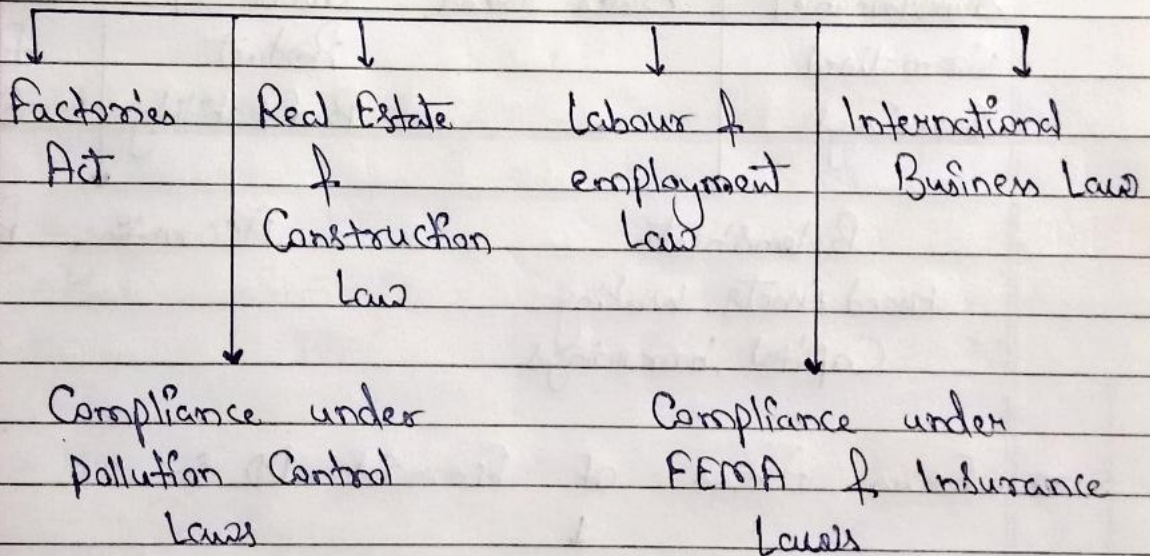 Factories
Act
Real Estate
&
Construction
Law
Labour &
employment
Law
International
Business Law
Compliance under
Pollution Control
Laws
Compliance under
FEMA & Insurance
Laws